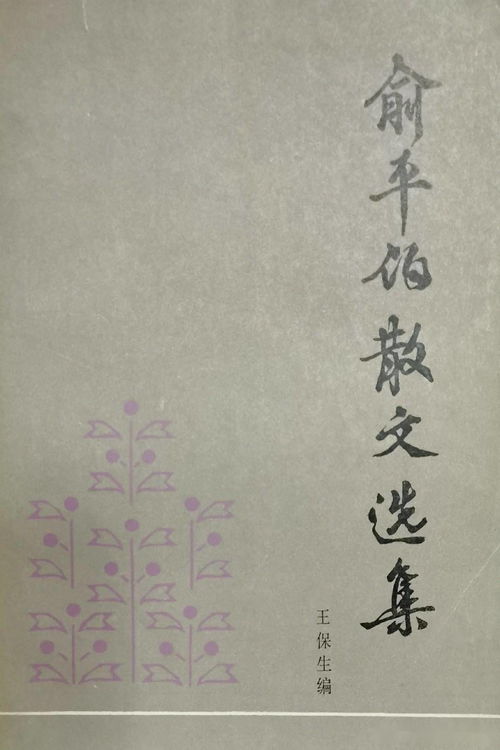 俞平伯散文选集
王保生编